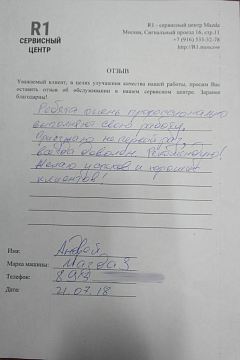 R1
СЕРВИСНЫЙ
ЦЕНТР
R1 - сервисный центр Mazda
Москва, Сигнальный проезд 16, стр.11
http://R1.moscow
ОТЗЫВ
Уважаемый клиент, в целях улучшения качества нашей работы, просим Вас
оставить отзыв об обслуживании в нашем сервисном центре. Заранее
благодарны!
Ребята очень профессионально
выполняют свою работу.
Приезжаю не первый раз,
всегда доволен. Рекомендую!
Желаю успехов и хороших
клиентов!
Имя: Андрей
Марка машины: Mazda 3
Телефон:
Дата: 21.07.18